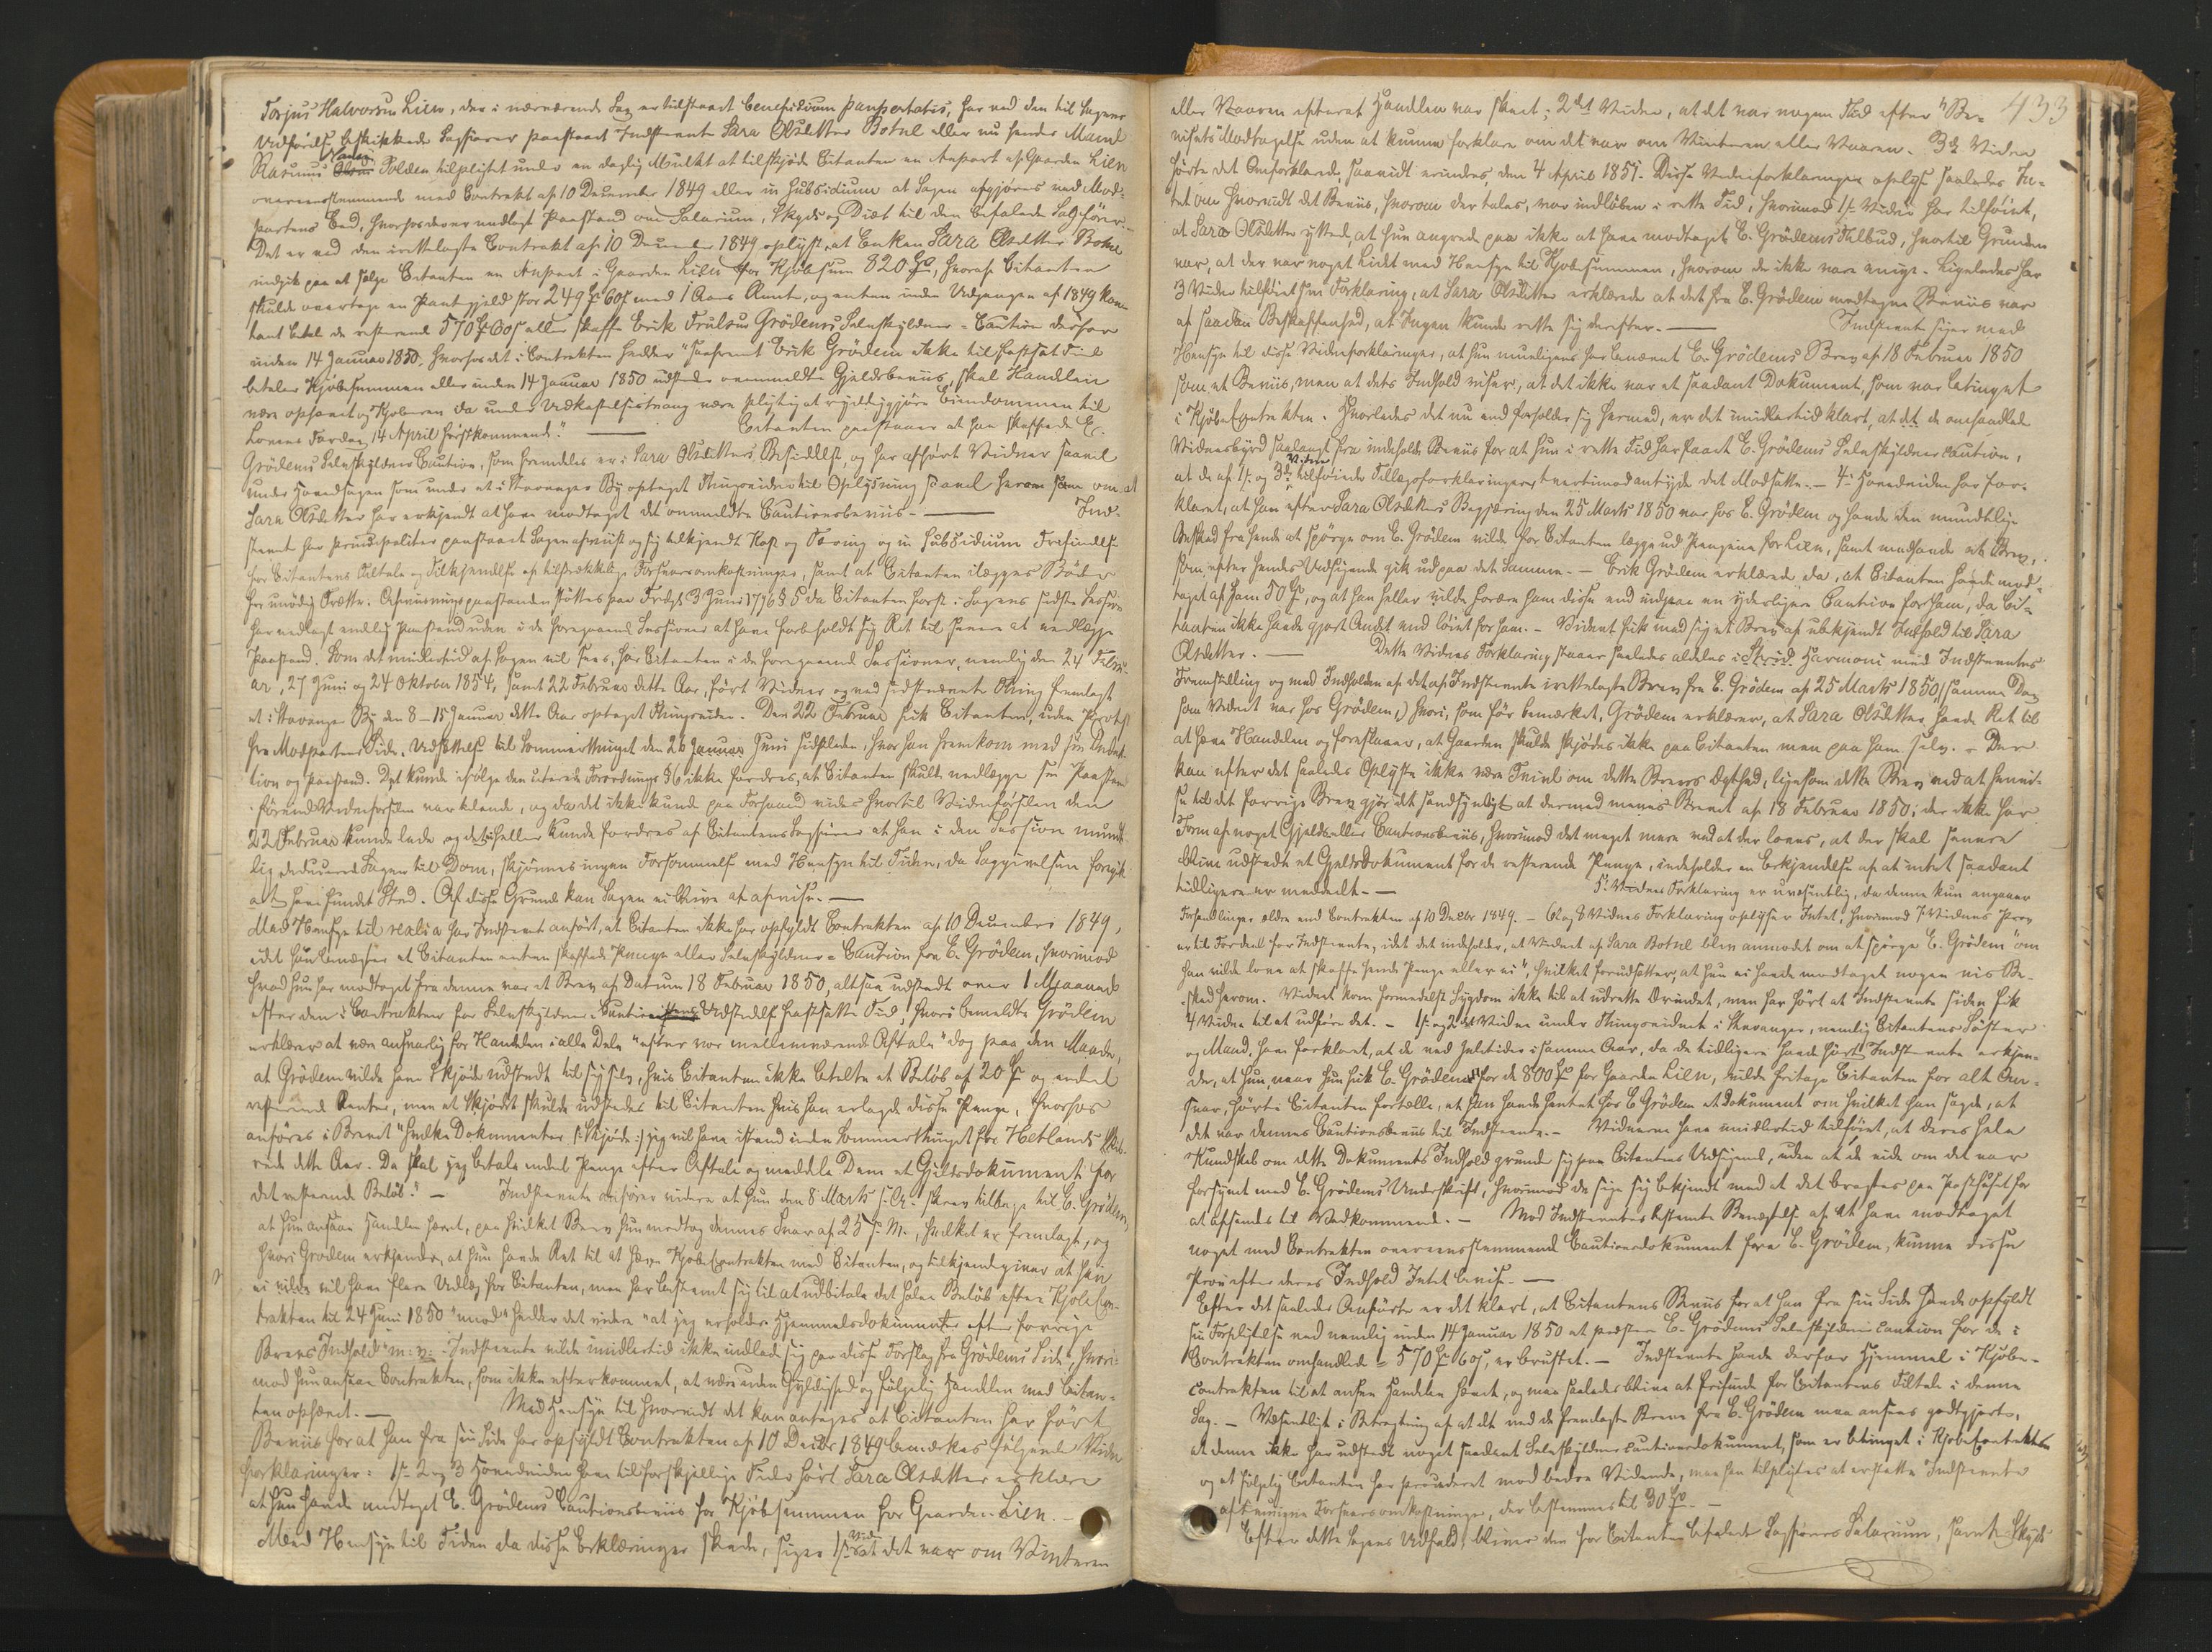 Torjus Halvorsen Lien, der i nærværende Sag er tilstaaet beneficium paupertatis, har ved den til Sagens
Udførelse beskikkede Sagfører paastaaet Indstevnte Sara Olsdatter Botne eller nu hendes Mand
Rasmus Hansen Tolden tilpligtet under en daglig Mulkt at tilskjøde Citanten en Anpart af Gaarden Lien
overensstemmende med Contrakt af 10 December 1849 eller in subsidium at Sagen afgjøres ved Mod-
partens Eed, hvorhos der er nedlagt Paastand om Salarium, Skyds og Diæt til den befalede Sagfører. -
Det er ved den irettelagte Contrakt af 10 December 1849 oplyst, at Enken Sara Olsdatter Botne
indgik paa at sælge Citanten en Anpart i Gaarden Lien for Kjøbesum 820 Spd, hvoraf Citanten
skulde overtage en Pantegjæld stor 249 Spd 60 s med 1 Aars Rente, og enten inden Udgangen af 1849 kon-
tant betale de resterende 570 Spd 60 s eller skaffe Erik Trulsen Grødems Selvskyldner = Caution derfor
inden 14 Januar 1850, hvorhos det i Contrakten hedder "saafremt Erik Grødem ikke til fastsat Tid
betaler Kjøbesummen eller inden 14 Januar 1850 udsteder ovenmeldte Gjældsbeviis, skal Handlen
være ophævet og Kjøberen da under Udkastelsestvang være pligtig at ryddiggjøre Eiendommen til
Lovens Fardag 14 April førstkommende." — Citanten paastaaer at han skaffede E.
Grødems Selvskyldner Caution, som fremdeles er i Sara Olsdatters Besiddelse, og har afhørt Vidner saavel
under Hovedsagen som under et i Stavanger By optaget Thingsvidne til Oplysning saavel herom som om at
Sara Olsdatter har erkjendt at have modtaget det ommeldte Cautionsbeviis. — Ind-
stevnte har principaliter paastaaet Sagen afviist og sig tilkjendt Kost og Tæring og in subsidium Frifindelse
for Citantens Tiltale og Tilkjendelse af tilstrækkelige Forsvarsomkostninger, samt at Citanten ilægges Bøder
for unødig Trætte. Afviisningspaastanden støttes paa Frdg. 3 Juni 1796 § 5 da Citanten først i Sagens sidste Session
har nedlagt endelig Paastand uden i de foregaaende Sessioner at have forbeholdt sig Ret til senere at nedlægge
Paastand. Som det imidlertid af Sagen vil sees, har Citanten i de foregaaende Sessioner, nemlig den 24 Febru-
ar, 27 Juni og 24 Oktober 1854, samt 22 Februar dette Aar, ført Vidner og ved sidstnævnte Thing fremlagt
et i Stavanger By den 8 - 15 Januar dette Aar optaget Thingsvidne. Den 22 Februar fik Citanten, uden Protest
fra Modpartens Side, Udsættelse til Sommerthinget den 26 Juni sidstleden, hvor han fremkom med sin Deduk-
tion og Paastand. Det kunde ifølge den citerede Forordnings § 6 ikke fordres, at Citanten skulde nedlægge sin Paastand
førend Vidneførslen var sluttende, og da det ikke kunde paa Forhaand vides hvortil Vidneførslen den
22 Februar kunde lede og det ei heller kunde fordres af Citantens Sagfører at han i den Session mundt-
lig deducerede Sagen til Dom, skjønnes ingen Forsømmelse med Hensyn til Tiden, da Saggivelsen foregik
at have fundet Sted. Af disse Grunde kan Sagen ei blive at afvise. —
Med Hensyn til realia har Indstevnte anført, at Citanten ikke har opfyldt Contrakten af 10 December 1849,
idet hun benægter at Citanten enten skaffede Penge eller Selvskyldner = Caution fra E. Grødem, hvorimod
hvad hun har modtaget fra denne var et Brev af Datum 18 Februar 1850, altsaa udstedt over 1 Maaned
efter den i Contrakten for Selvskyldner Cautions Udstedelse fastsatte Tid, hvori bemeldte Grødem
erklærer at være ansvarlig for Handelen i alle Dele "efter vor mellemværende Aftale" dog paa den Maade,
at Grødem vilde have Skjøde udstedt til sig selv, hvis Citanten ikke betalte et Beløb af 20 Spd og endeel
resterende Renter, men at Skjødet skulde udstedes til Citanten hvis han erlagde disse Penge, hvorhos
anføres i Brevet "hvilke Dokumenter (: Skjøde :) jeg vil have istand inden Sommerthinget for Hetlands Skib-
rede dette Aar. Da skal jeg betale endeel Penge efter Aftale og meddele Dem et Gjældsdokument for
det resterende Beløb." — Indstevnte anfører videre at hun den 8 Marts s. A. skrev tilbage til E. Grødem,
at hun ansaae Handlen hævet, paa hvilket Brev hun modtog dennes Svar af 25 s. M., hvilket er fremlagt, og
hvori Grødem erkjender, at hun havde Ret til at hæve KjøbeContrakten med Citanten, og tilkjendegiver at han
ei vilde vil have flere Udlæg for Citanten, men har bestemt sig til at udbetale det hele Beløb efter KjøbeCon-
trakten til 24 Juni 1850 "mod" hedder det videre "at jeg erholder Hjemmelsdokumenter efter forrige
Brevs Indhold" m: v: - Indstevnte vilde imidlertid ikke indlade sig paa disse Forslag fra Grødems Side, hvori-
mod hun ansaae Contrakten, som ikke efterkommet, at være uden Gyldighed og følgelig Handlen med Citan-
ten ophævet. — Med Hensyn til hvorvidt det kan antages at Citanten har ført
Beviis for at han fra sin Side har opfyldt Contrakten af 10 Decbr 1849 bemærkes følgende Vidne
forklaringer: 1ste 2 og 3 Hovedvidne have til forskjellige Tider hørt Sara Olsdatter erklære
at hun havde modtaget E. Grødems Cautionsbeviis for Kjøbesummen for Gaarden Lien. -
Med Hensyn til Tiden da disse Erklæringer skede, siger 1ste Vidne at det var om Vinteren
433
eller Vaaren efterat Handlen var skeet; 2det Vidne, at det var nogen Tid efter "Be-
visets" Modtagelse uden at kunne forklare om det var om Vinteren eller Vaaren. 3die Vidne
hørte det Omforklarede, saavidt erindres, den 4 April 1851. Disse Vidneforklaringer oplyse saaledes In-
tet om hvorvidt det Beviis, hvorom der tales, var indløben i rette Tid, hvorimod 1ste Vidne har tilføiet,
at Sara Olsdatter yttrede, at hun angrede paa ikke at have modtaget E. Grødems Tilbud, hvortil Grunden
var, at der var noget Lidt med Hensyn til Kjøbesummen, hvorom de ikke vare enige. Ligeledes har
3 Vidne tilføiet sin Forklaring, at Sara Olsdatter erklærede at det fra E. Grødem modtagne Beviis var
af saadan Beskaffenhed, at Ingen kunde rette sig derefter. — Indstevnte siger med
Hensyn til disse Vidneforklaringer, at hun muligens har benævnt E. Grødems Brev af 18 Februar 1850
som et Beviis, men at dets Indhold viser, at det ikke var et saadant Dokument, som var betinget
i KjøbeContrakten. Hvorledes det nu end forholder sig hermed, er det imidlertid klart, at det de omhandlede
Vidnesbyrd saalangt fra indeholde Beviis for at hun i rette Tid har faaet E. Grødems Selvskyldner Caution,
at de af 1ste og 3die Vidne tilføiede Tillægsforklaringer tvertimod antyde det Modsatte. — 4de Hovedvidne har for-
klaret, at han efter Sara Olsdatters Begjæring den 25 Marts 1850 var hos E. Grødem og havde den mundtlige
Besked fra hende at spørge om E. Grødem vilde for Citanten lægge ud Pengene for Lien, samt medhavde et Brev,
som efter hendes Udsigende gik ud paa det Samme. - Erik Grødem erklærede da, at Citanten havde mod-
taget af ham 50 Spd, og at han heller vilde forære ham disse end indgaae en yderligere Caution for ham, da Ci-
tanten ikke havde gjort Andet end løiet for ham. - Vidnet fik med sig et Brev af ubekjendt Indhold til Sara
Olsdatter. — Dette Vidnes Forklaring staaer saaledes aldeles i Harmoni med Indstevntes
Fremstilling og med Indholdet af det af Indstevnte irettelagte Brev fra E. Grødem af 25 Marts 1850, (samme Dag
som Vidnet var hos Grødem,) hvori, som før bemærket, Grødem erklærer, at Sara Olsdatter havde Ret til
at hæve Handelen og foreslaaer, at Gaarden skulde skjødes ikke paa Citanten men paa ham selv. - Der
kan efter det saaledes Oplyste ikke være Tvivl om dette Brevs Ægthed, ligesom dette Brev ved at henvi-
se til det forrige Brev gjør det sandsynligt at dermed menes Brevet af 18 Februar 1850, der ikke har
Form af noget Gjelds eller Cautionsbeviis, hvorimod det meget mere ved at der loves, at der skal senere
blive udstedt et Gjeldsdokument for de resterende Penge, indeholder en Erkjendelse af at intet saadant
tidligere er meddeelt. — 5te Vidnes Forklaring er uvæsentlig, da denne kun angaaer
Forhandlinger ældre end Contrakten af 10 Decbr 1849. - 6te og 8 Vidnes Forklaring oplyser Intet, hvorimod 7 Vidnes Prov
er til Fordeel for Indstevnte, idet det indeholder, at Vidnet af Sara Botne blev anmodet om at spørge E. Grødem "om
han vilde love at skaffe hende Penge eller ei", hvilket forudsætter, at hun ei havde modtaget nogen vis Be-
sked herom. Vidnet kom formedelst Sygdom ikke til at udrette Ærindet, men har hørt at Indstevnte siden fik
4 Vidne til at udføre det. - 1ste og 2det Vidne under Thingsvidnet i Stavanger, nemlig Citantens Søster
og Mand, have forklaret, at de ved Juletider i samme Aar, da de tidligere havde hørt Indstevnte erkjen-
de, at hun, naar hun fik E. Grødem for de 800 Spd for Gaarden Lien, vilde fritage Citanten for alt An-
svar, hørte Citanten fortælle, at han havde hentet hos E Grødem et Dokument om hvilket han sagde, at
det var dennes Cautionsbeviis til Indstevnte. - Vidnerne have imidlertid tilføiet, at deres hele
Kundskab om dette Dokuments Indhold grunder sig paa Citantens Udsigende, uden at de vide om det var
forsynet med E. Grødems Underskrift, hvorimod de sige sig bekjendt med at det bragtes paa Posthuset for
at afsendes til Vedkommende. - Mod Indstevntes bestemte Benægtelse af at have modtaget
noget med Contrakten overeensstemmende Cautionsdokument fra E. Grødem, kunne disse
Prov efter deres Indhold Intet bevise. —
Efter det saaledes Anførte er det klart, at Citantens Beviis for at han fra sin Side havde opfyldt
sin Forpligtelse ved nemlig inden 14 Januar 1850 at præstere E. Grødems Selvskyldner Caution for de i
Contrakten omhandlede = 570 Spd 60 s, er brustet. - Indstevnte havde derfor Hjemmel i Kjøbe-
contrakten til at ansee Handelen hævet, og maa saaledes blive at frifinde for Citantens Tiltale i denne
Sag. - Væsentligst i Betragtning af at det ved de fremlagte Breve fra E. Grødem maa ansees godtgjort,
at denne ikke har udstedt noget saadant Selvskyldner Cautionsdokument, som er betinget i KjøbeContrakten
og at følgelig Citanten har procederet mod bedre Vidende, maa han tilpligtes at erstatte Indstevnte
Forsvarsomkostninger, der bestemmes til 30 Spd. -
Efter dette Sagens Udfald, bliver den for Citanten befalede Sagførers Salarium, samt Skyds